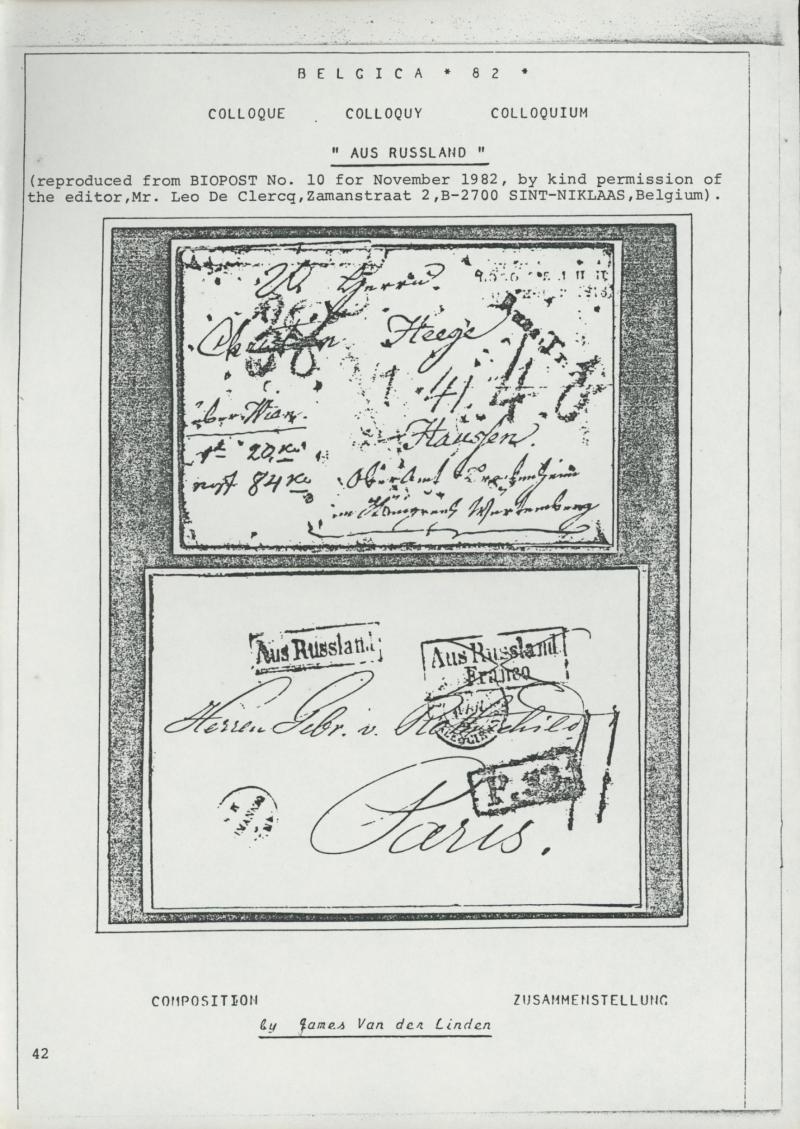 BELGICA * 82 *
COLLOQUE COLLOQUY COLLOQUIUM
" AUS RUSSLAND "
(reproduced from BIOPOST No. 10 for November 1982, by kind permission of
the editor,Mr. Leo De Clercq,Zamanstraat 2,B-2700 SINT-NIKLAAS,Belgium).
Herrn
Heege
41
über Wien.
Haussen.
20 Kr
84 Kr
OberAmt
im Königreich Wurtemberg
Aus Russland
Aus Russland
Franco
Herren Gebr. v. Rothschild
P.
Paris.
COMPOSITION ZUSAMMENSTELLUNG
by James Van der Linden
42